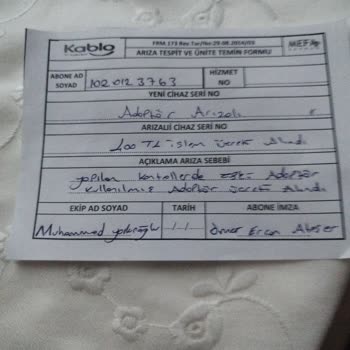 Kablo
FRM_173 Rev.Tar/No:29.08.2014/03
ARIZA TESPİT VE ÜNİTE TEMİN FORMU
ABONE AD SOYAD
102 012 3763
HİZMET NO
YENİ CİHAZ SERİ NO
Adaptör Arızalı
ARIZALI CİHAZ SERİ NO
100 TL işlem ücreti Alındı
AÇIKLAMA ARIZA SEBEBİ
yapılan kontrollerde eski Adaptör
kullanılmış Adaptör ücreti Alındı
EKİP AD SOYAD
TARİH
ABONE İMZA
Muhammed
Ömer Ercan